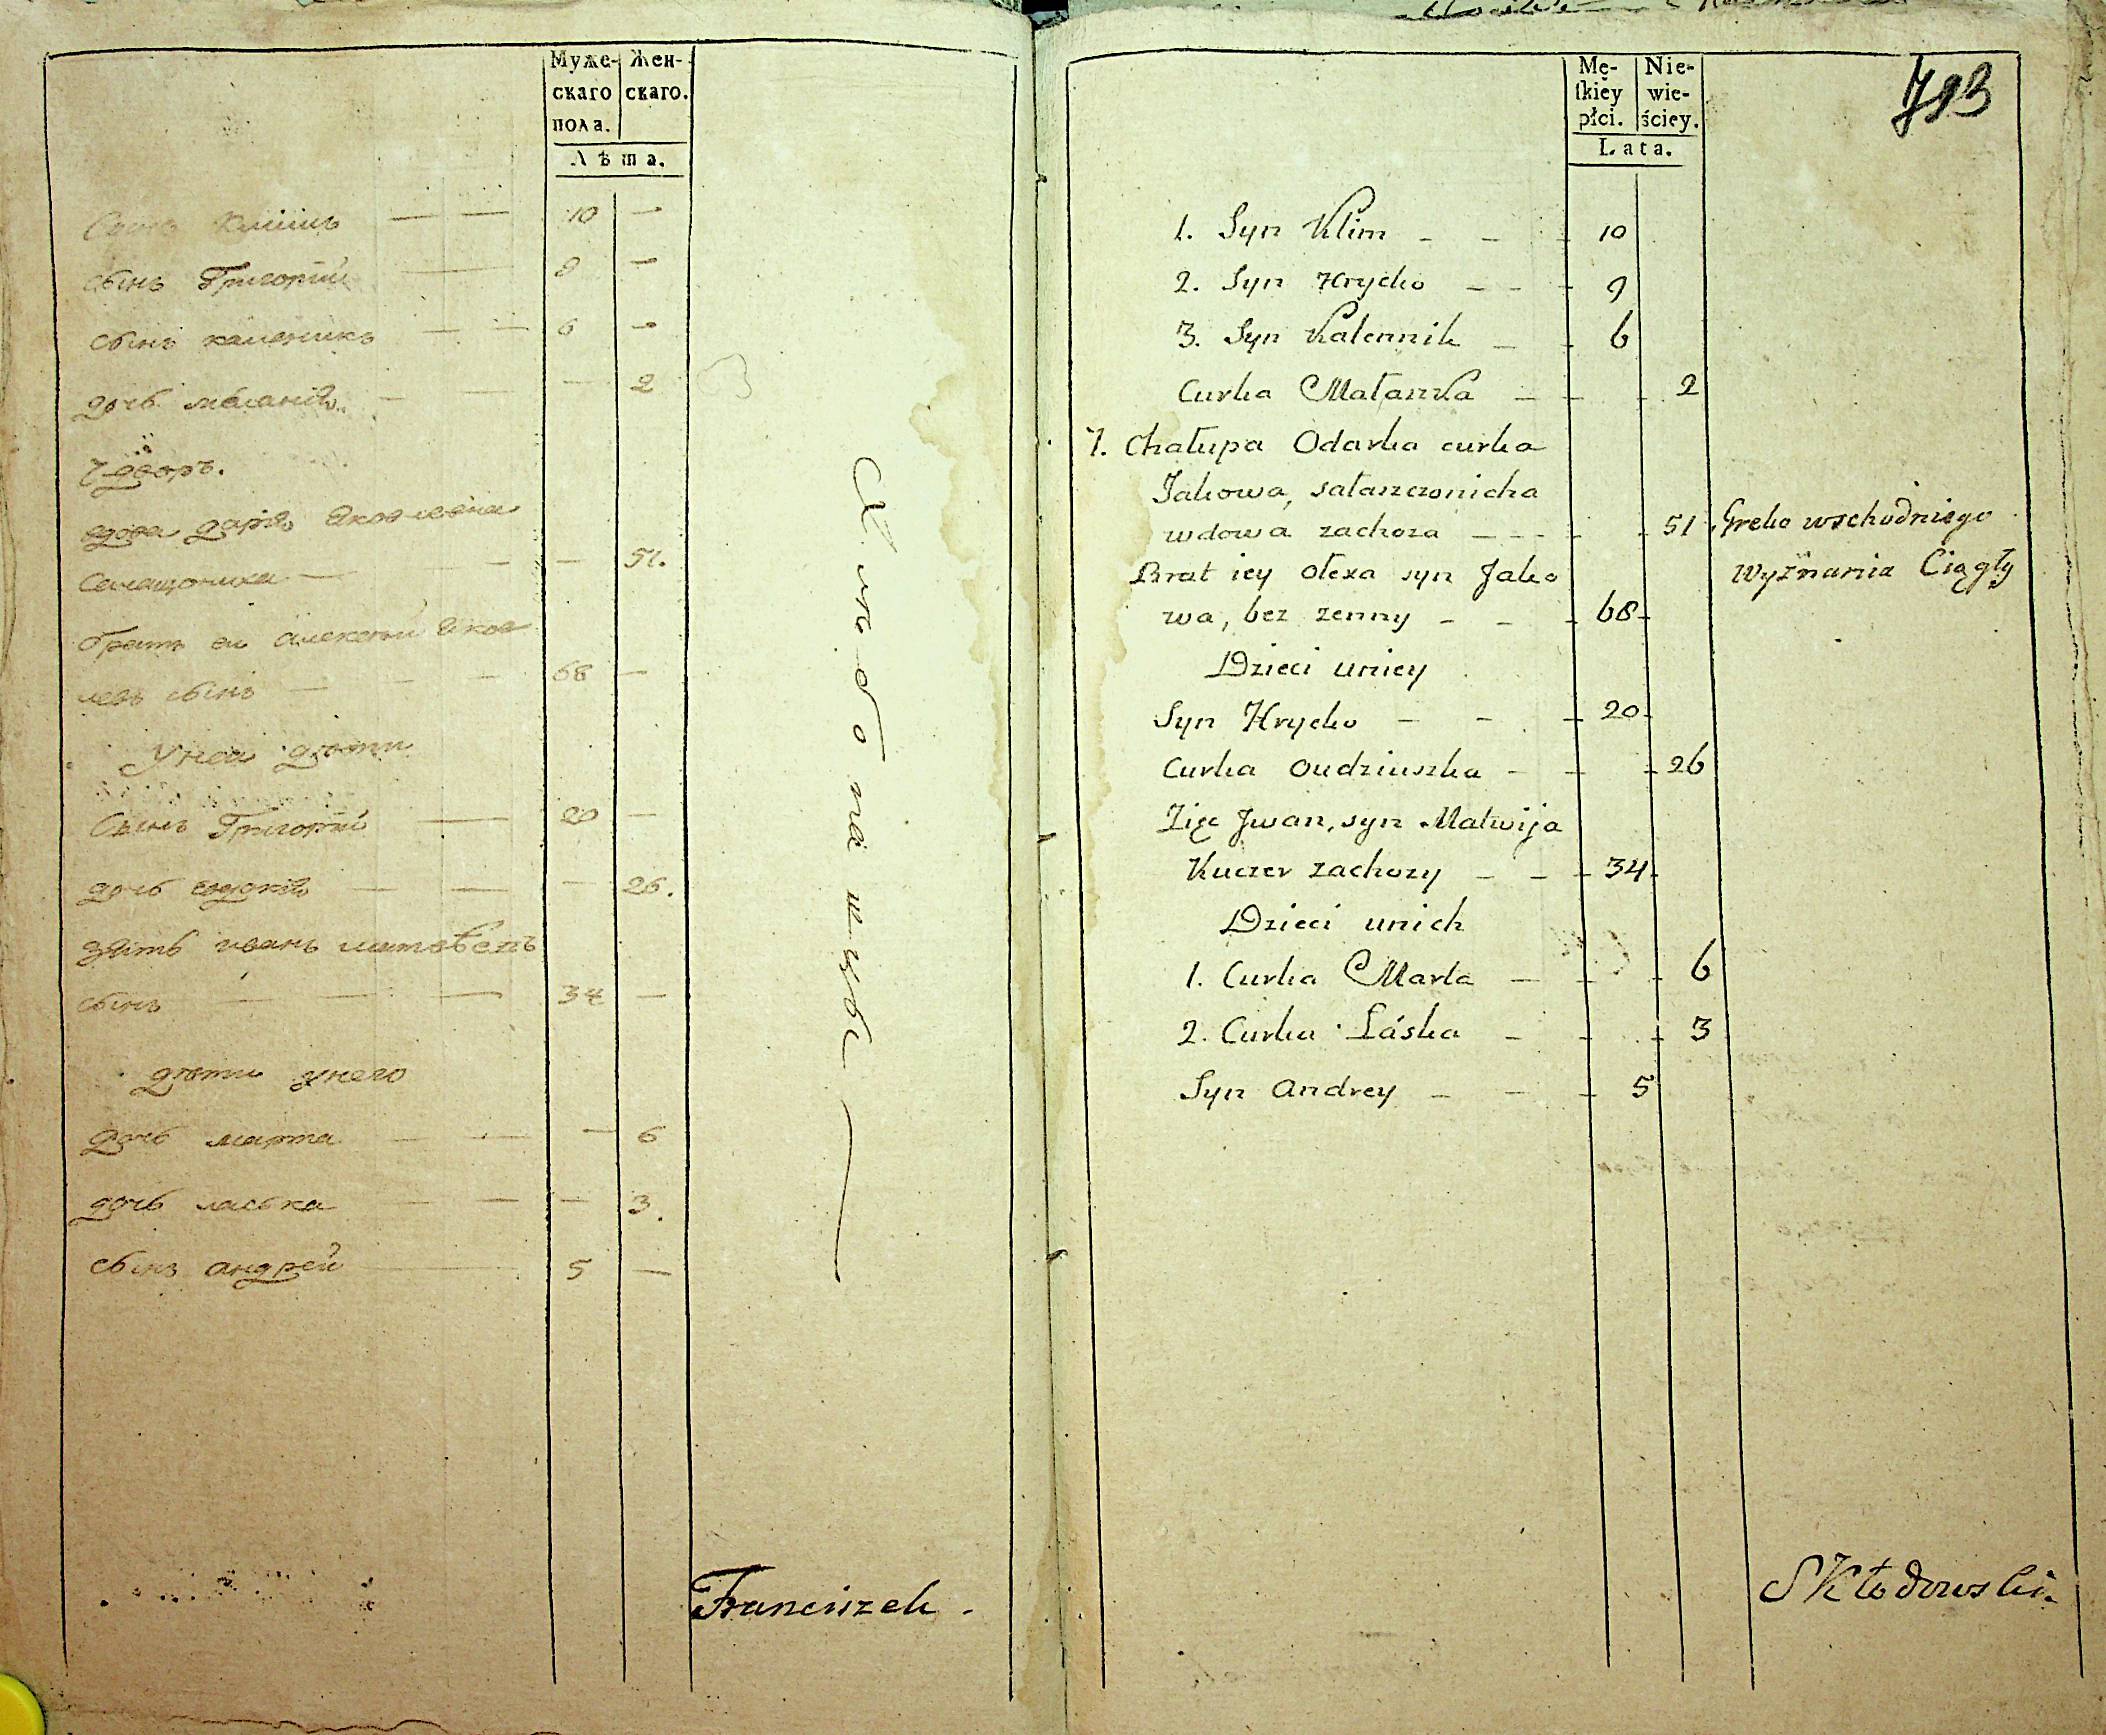 Муже-
скаго
пола.
Жен-
скаго.
Лѣта.
Сынъ Климъ — — 10 —
сынъ Григорій — 9 —
сынъ каленикъ — — 6 —
дочь маланія — — — 2
7 дворъ.
вдова дарія Яковлевна
салащониха — — — — 51.
братъ еи алексей Яков
левъ сынъ — — — 68 —
У неи дѣти
Сынъ Григорій — 20 —
дочь евдокія — — — 26.
зять иванъ матвѣевъ
сынъ — — — 34 —
дѣти у него
Дочь марта — — — 6
дочь ласька — — — 3.
сынъ андрей — 5 —
Franciszek.
793
Mę-
skiey
płci.
Nie-
wie-
ściey.
Lata.
1. Syn Klim - - - 10
2. Syn Hrycko - - - 9
3. Syn Kalennik - - 6
Curka Małanka - - - 2
7. Chałupa Odarka curka
Jakowa, sałaszczonicha
wdowa zachoza - - - - - 51 Greko wschodniego
Brat iey Olexa syn Jako Wyznania Ciągły
wa, bez zenny - - - 68 -
Dzieci uniey
Syn Hrycko - - - 20 -
Curka Oudziuszka - - - 26
Zięc Jwan, syn Matwija
Kuczer zachozy - - - 34 -
Dzieci unich
1. Curka Marta - - - 6
2. Curka Láska - - - 3
Syn Andrey - - - 5
Skłodowski.